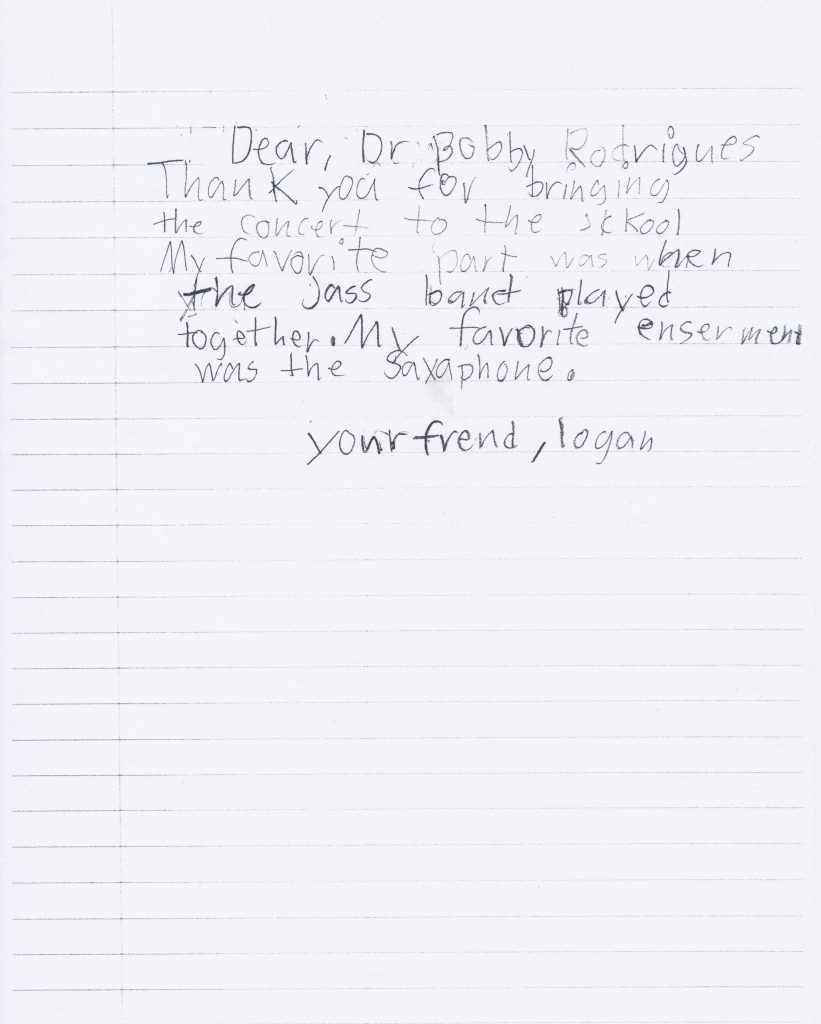 Dear, Dr. Bobby Rodrigues
Thank you for bringing
the concert to the sckool
My favorite part was when
the Jass band played
together. My favorite enserment
was the Saxaphone.
your frend, logan